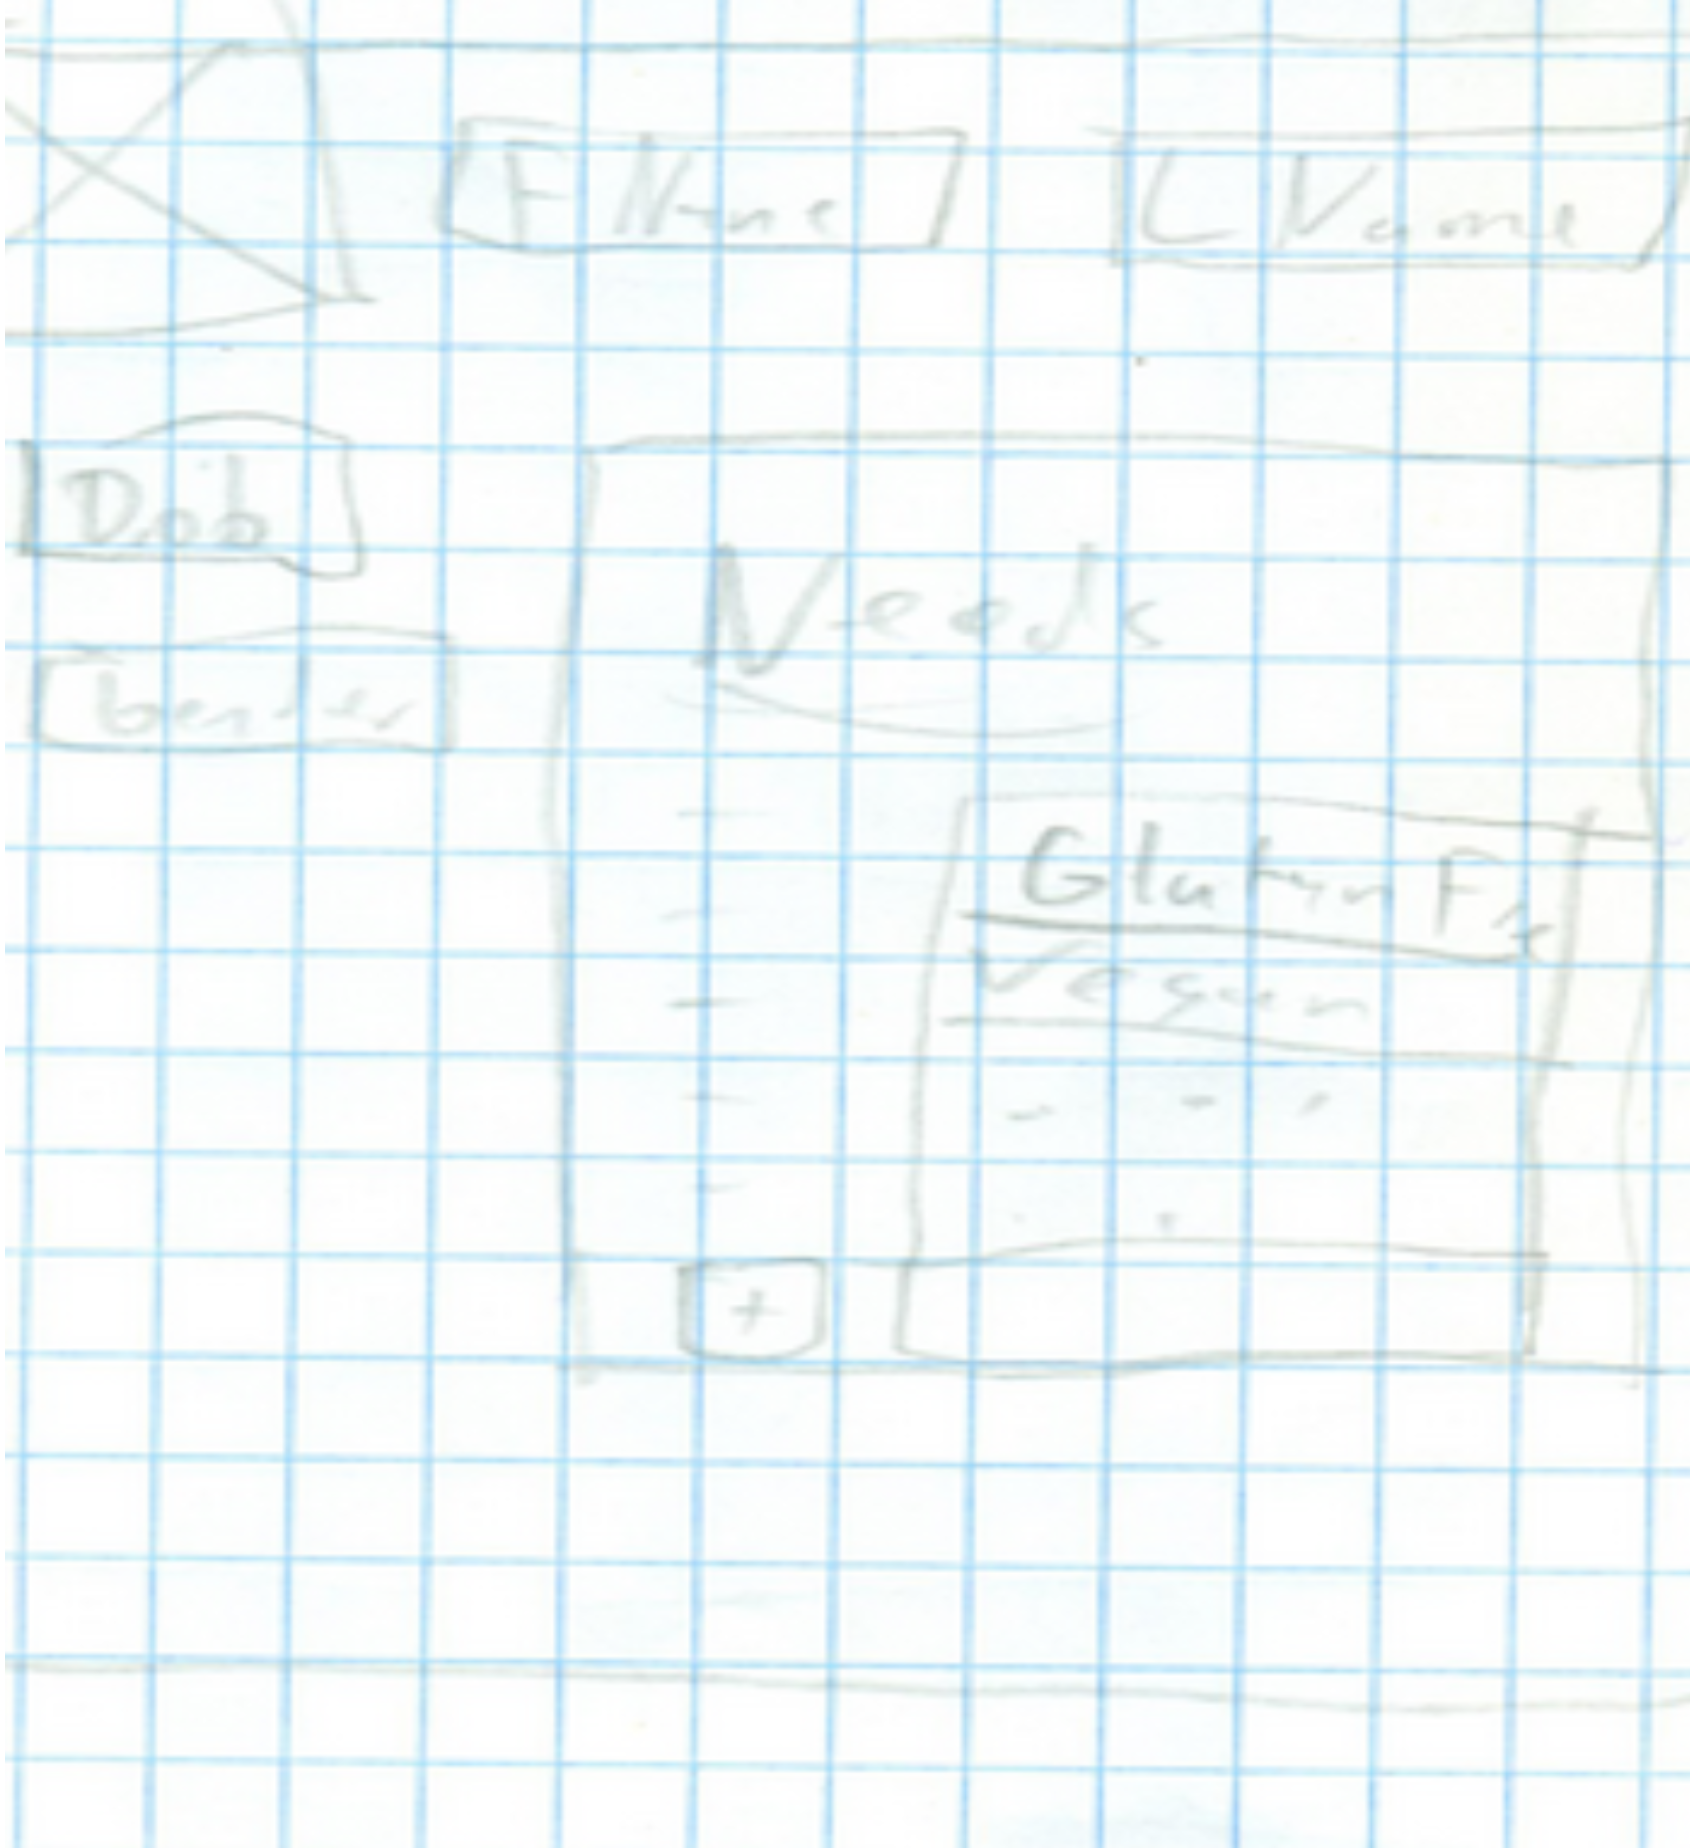 F Name
L Name
Dob
Gender
Needs
Gluten Fre
Vegan
+